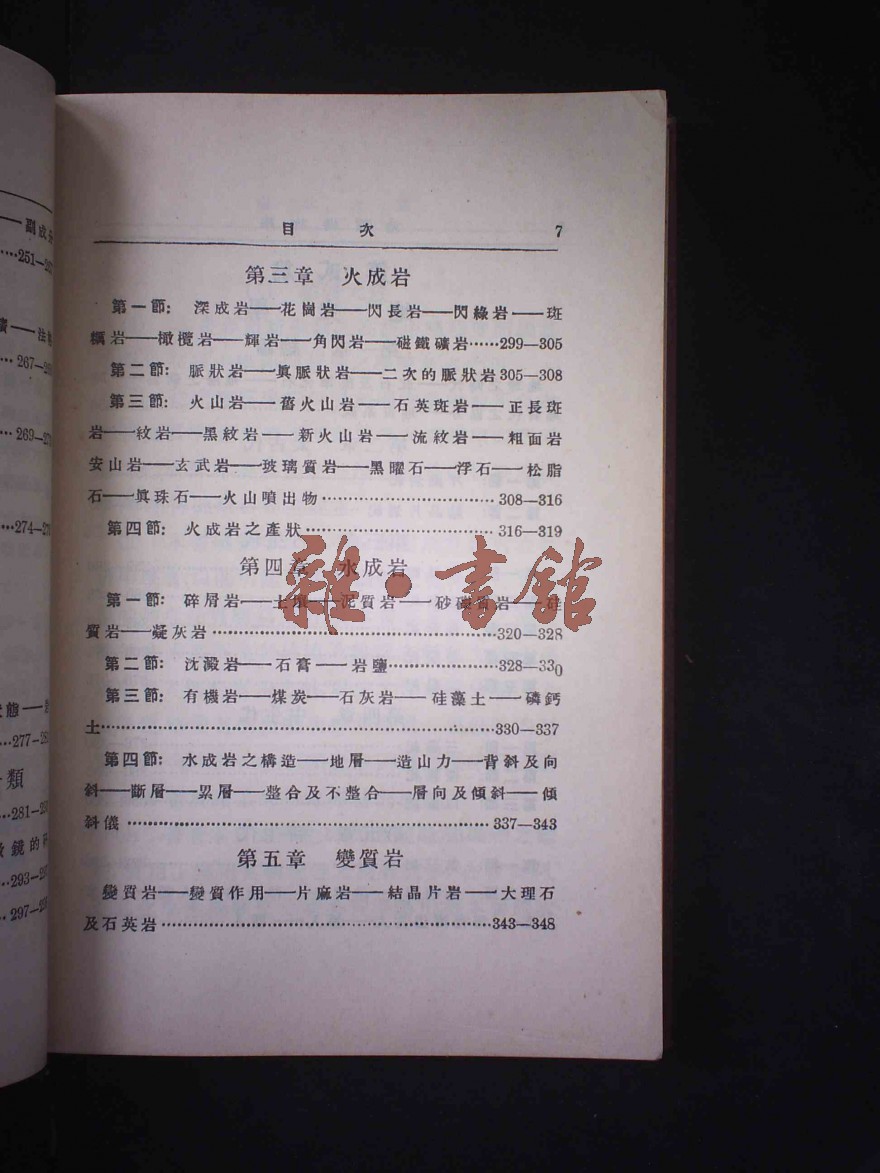 目 次 7
第三章 火成岩
第一節: 深成岩——花崗岩——閃長岩——閃綠岩——斑
糲岩——橄欖岩——輝岩——角閃岩——磁鐵礦岩……299—305
第二節: 脈狀岩——眞脈狀岩——二次的脈狀岩305—308
第三節: 火山岩——舊火山岩——石英斑岩——正長斑
岩——紋岩——黑紋岩——新火山岩——流紋岩——粗面岩
安山岩——玄武岩——玻璃質岩——黑曜石——浮石——松脂
石——眞珠石——火山噴出物……308—316
第四節: 火成岩之產狀……316—319
第四章 水成岩
第一節: 碎屑岩——土壤——泥質岩——砂礫質岩——硅
質岩——凝灰岩……320—328
第二節: 沈澱岩——石膏——岩鹽……328—330
第三節: 有機岩——煤炭——石灰岩——硅藻土——磷鈣
土……330—337
第四節: 水成岩之構造——地層——造山力——背斜及向
斜——斷層——累層——整合及不整合——層向及傾斜——傾
斜儀……337—343
第五章 變質岩
變質岩——變質作用——片麻岩——結晶片岩——大理石
及石英岩……343—348
雜·書館